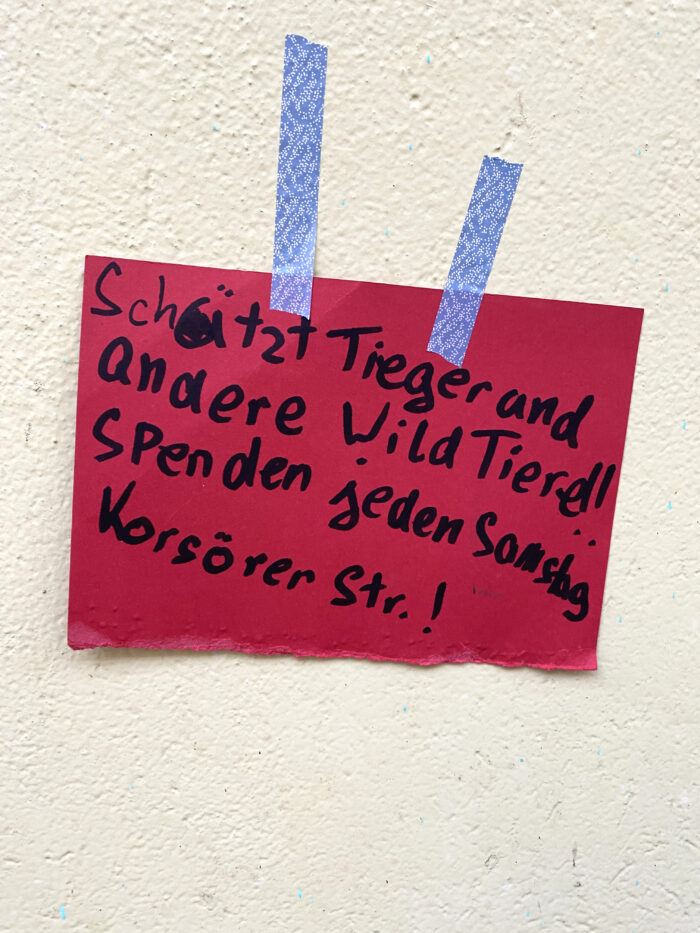 Schätzt Tieger und
andere Wild Tiere!!
Spenden jeden Samstag
Korsörer Str.!